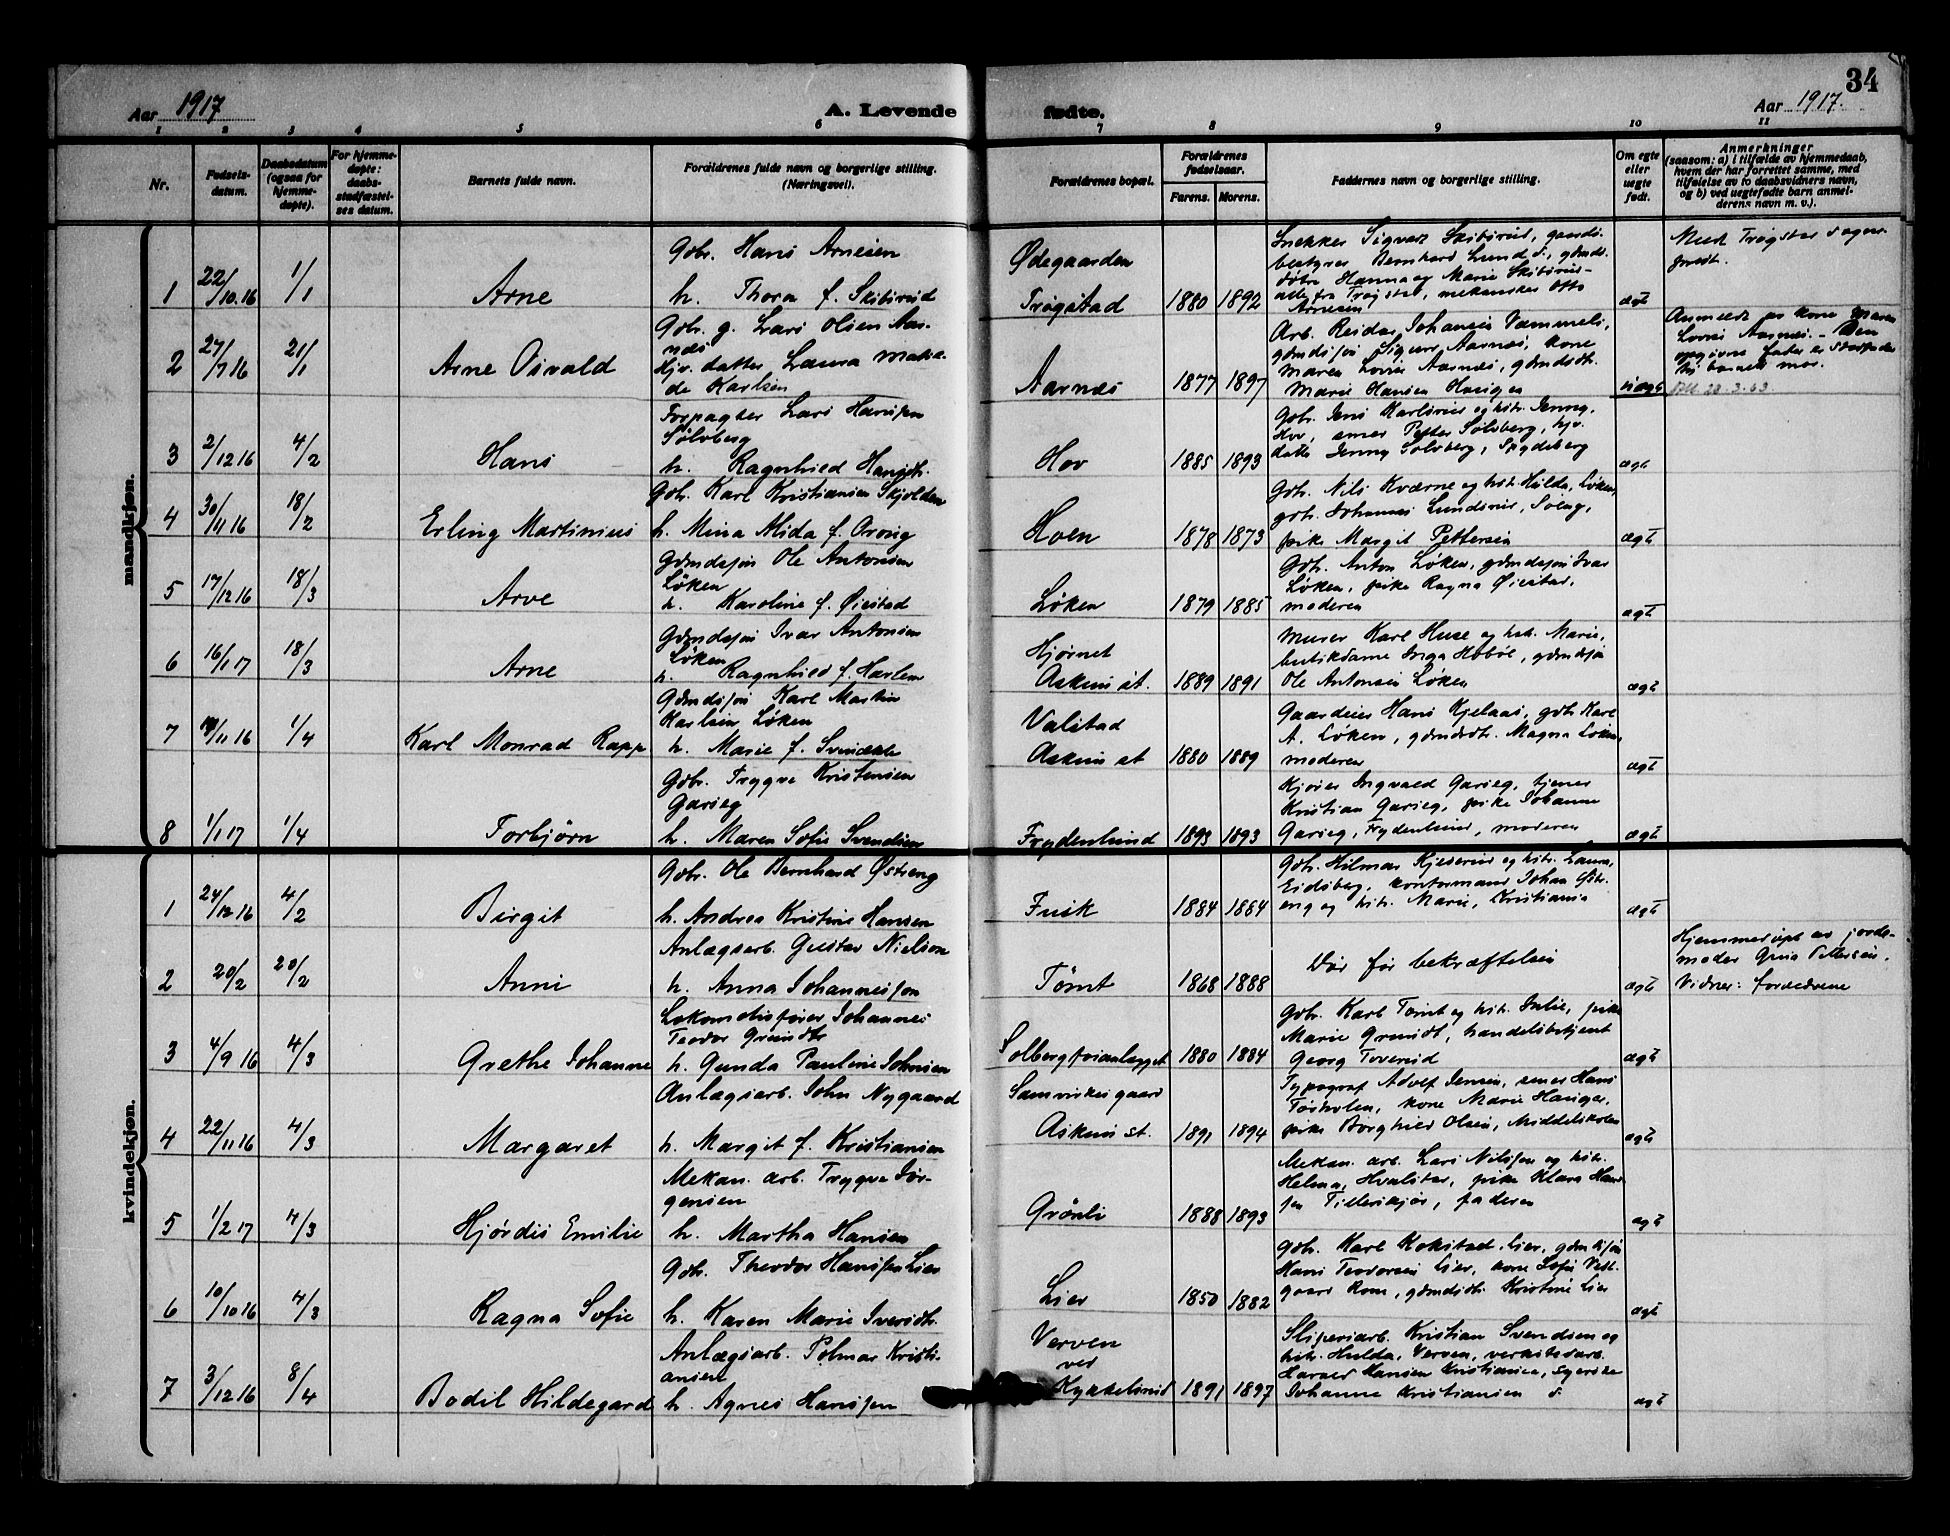 34
Aar 1917
A. Levende
fødte.
Aar 1917.
1 2 3 4 5 6 7 8 9 10 11
Nr.
Fødselsdatum.
Daabsdatum (ogsaa for hjemmedøpte).
For hjemmedøpte: daabsstadfæstelses datum.
Barnets fulde navn.
Forældrenes fulde navn og borgerlige stilling. (Næringsvei).
Forældrenes bopæl.
Forældrenes fødselsaar.
Farens. Morens.
Faddernes navn og borgerlige stilling.
Om egte eller uegte født.
Anmerkninger
(saasom: a) i tilfælde av hjemmedaab, hvem der har forrettet samme, med tilføielse av to daabsvidners navn, og b) ved uegtefødte barn anmelderens navn m. v.).
mandkjøn.
1 22/10.16 1/1 Arne
Gbr. Hans Arnesen
h. Thora f. Skibsrud
Ødegaarden
Trøgstad 1880 1892
Snekker Sigvard Skibsrud, gaards-
bestyrer Bernhard Lund
døtre Hanna og Marie Skibsrud
alle fra Trøgstad, mekaniker Otto
Arnesen
ægt
Med Trøgstad sogne-
2 27/7 16 21/1 Arne Osvald
Gbr. g. Lars Olsen Aar-
næs
Hjv. datter Laura Mathil-
de Karlsen
Aarnæs 1877 1897
Arb. Reidar Johansen Vammeli,
gdmdsøn Sigurd Aarnæs, kone
Maren Lovise Aarnæs, gdmdsdt.
Marie Hansen Haugen
uægt
Anmeldt av kone Maren
Lovise Aarnæs. - Den
opgivne fader er stedfader
til barnets mor.
3 2/12 16 4/2 Hans
Forpagter Lars Hansen
Sølvberg
h. Ragnhild Hansdt.
Hov 1885 1893
Gbr. Jens Karlsrud og hstr. Jenny,
Hov, smed Petter Sølvberg, hjv.
datter Jenny Sølvberg, Spydeberg
ægt
4 30/11 16 18/2 Erling Martinius
Gbr. Karl Kristiansen Skjolden
h. Mina Alida f. Orvig
Hoen 1878 1873
Gbr. Nils Kværne og hstr. Hilda, Løken,
gbr. Johannes Lundsrud,
pike Margit Pettersen
ægt
5 17/12 16 18/3 Arve
Gdmdsøn Ole Antonsen
Løken
h. Karoline f. Øiestad
Løken 1879 1885
Gbr. Anton Løken, gdmdsøn Ivar
Løken, pike Ragna Øiestad,
moderen
ægt
6 16/1 17 18/3 Arne
Gdmdsøn Ivar Antonsen
Løken
h. Ragnhild f. Harlem
Hjørnet
Askim st. 1889 1891
Murer Karl Huse og hstr. Marie,
butikdame Inga Hobøl, gdmdsøn
Ole Antonsen Løken
ægt
7 19/11 16 1/4 Karl Monrad Rapp
Gdmdsøn Karl Martin
Karlsen Løken
h. Marie f. Svendsdt.
Valstad
Askim st 1880 1889
Gaardeier Hans Kjelaas, gbr Karl
A. Løken, gdmdsdtr. Magna Løken,
moderen
ægt
8 1/1 17 1/4 Torbjørn
Gbr. Trygve Kristensen
Garseg
h. Maren Sofie Svendsen
Frydenlund 1893 1893
Kjører Ingvald Garseg, tjener
Kristian Garseg, pike Johanne
Garseg, Frydenlund, moderen
ægt
kvindekjøn.
1 24/12 16 4/2 Birgit
Gbr. Ole Bernhard Østreng
h. Andrea Kristine Hansen
Fusk 1884 1884
Gbr. Hilmar Kjeserud og hstr. Laura,
Eidsberg, kontormand Johan Østr-
eng og hstr. Marie, Kristiania
ægt
2 20/2 20/2 Anni
Anlægsarb. Gustav Nielson
h. Anna Johannesson
Tømt 1868 1888
Død før bekræftelsen
ægt
Hjemmedøpt av jorde-
moder Gina Pettersen.
Vidner: forældrene
3 4/9 16 4/3 Grethe Johanne
Lokomotivfører Johannes
Teodor Grundt
h. Gunda Pauline Johnsen
Solbergfosanlægget 1880 1884
Gbr. Karl Tømt og hstr. Julie, pike
Marie Grundt, handelsbetjent
Georg Toverud
ægt
4 22/11 16 4/3 Margaret
Anlægsarb. John Nygaard
h. Margit f. Kristiansen
Samvirkesgaard
Askim st. 1891 1894
Typograf Adolf Jensen, smed Hans
kone Marie Hauger,
pike Borghild Olsen, Middelskolen
ægt
5 1/2 17 4/3 Hjørdis Emilie
Mekan. arb. Trygve Jør-
gensen
h. Martha Hansen
Grønli 1888 1893
Mekan. arb. Lars Nilssen og hstr.
Helma, Hvalstar, pike Klara Han-
sen faderen
ægt
6 10/10 16 4/3 Ragna Sofie
Gbr. Theodor Hanssen Lier
h. Karen Marie Iversdt.
Lier 1850 1882
Gbr. Karl Kokstad, Lier, gdmdsøn
Hans Teodorsen Lier, kone Sofie Vest-
gaard Rom, gdmdsdt. Kristine Lier
ægt
7 3/12 16 8/4 Bodil Hildegard
Anlægsarb. Polmar Kristi-
ansen
h. Agnes Hanssen
Verven
ved
Kykkelsrud 1891 1897
Sliperiarb. Kristian Svendsen og
hstr. Hulda, Verven, verkstedsarb.
Harald Hansen Kristiansen, syerske
Johanne Kristiansen
ægt